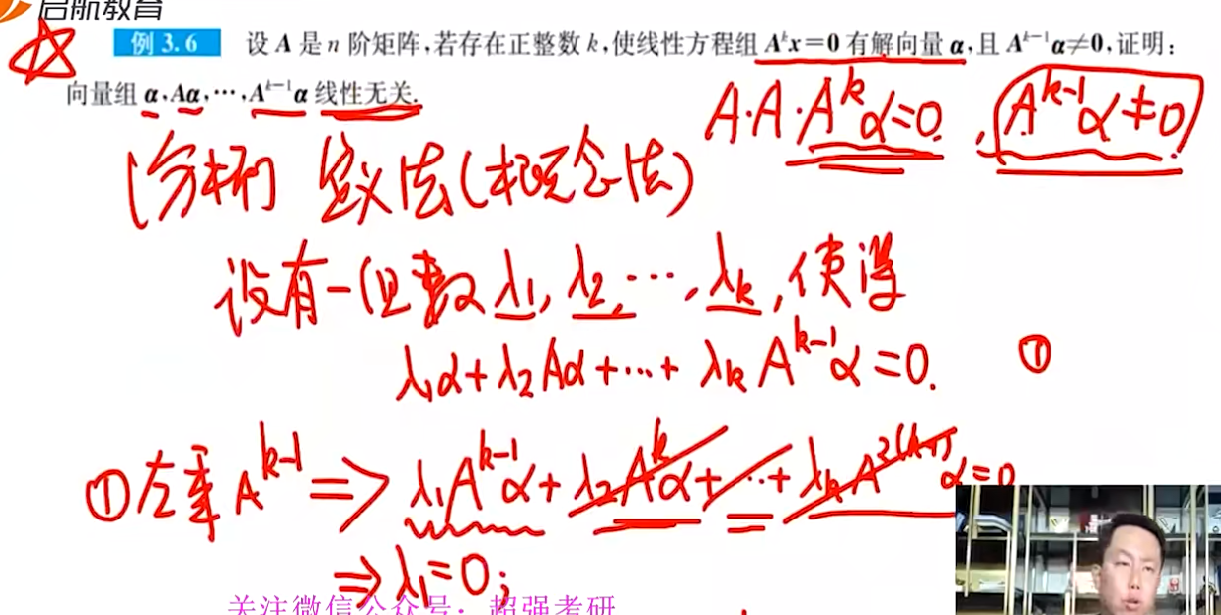 启航教育
例 3.6 设 A 是 n 阶矩阵,若存在正整数 k,使线性方程组 Aᵏx=0 有解向量 α,且 Aᵏ⁻¹α≠0,证明:
向量组 α,Aα,⋯,Aᵏ⁻¹α 线性无关.
A·A·Aᵏα=0. , Aᵏ⁻¹α≠0.
[分析] 定义法(概念法)
设有一组数 λ₁, λ₂, ⋯, λₖ, 使得
λ₁α+λ₂Aα+⋯+λₖAᵏ⁻¹α=0. ①
①左乘 Aᵏ⁻¹ => λ₁Aᵏ⁻¹α+λ₂Aᵏα+⋯+λₖA²⁽ᵏ⁻¹⁾α=0
=> λ₁=0;
关注微信公众号: 超强考研